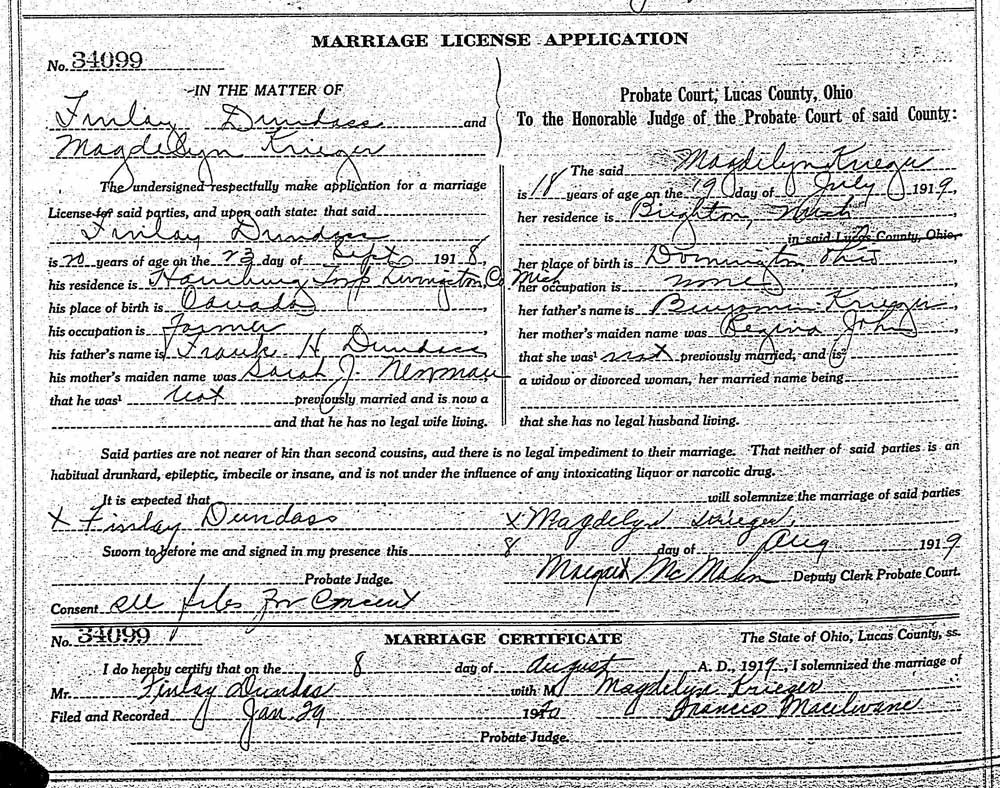 MARRIAGE LICENSE APPLICATION
No. 34099
IN THE MATTER OF
Finlay Dundass and
Magdelyn Krieger
The undersigned respectfully make application for a marriage
License for said parties, and upon oath state: that said
Finlay Dundass
is 20 years of age on the 23 day of Sept 1918,
his residence is Hamburg Twp Livingston Co Mich
his place of birth is Canada
his occupation is Farmer
his father's name is Frank H Dundass
his mother's maiden name was Sarah J. Newman
that he was¹ not previously married and is now a
and that he has no legal wife living.
Probate Court, Lucas County, Ohio
To the Honorable Judge of the Probate Court of said County:
The said Magdelyn Krieger
is 18 years of age on the 19 day of July 1919,
her residence is Brighton, Mich
in said Lucas County, Ohio,
her place of birth is Ohio
her occupation is none
her father's name is Benjamin Krieger
her mother's maiden name was Regina John
that she was¹ not previously married, and is²
a widow or divorced woman, her married name being
that she has no legal husband living.
Said parties are not nearer of kin than second cousins, and there is no legal impediment to their marriage. That neither of said parties is an
habitual drunkard, epileptic, imbecile or insane, and is not under the influence of any intoxicating liquor or narcotic drug.
It is expected that will solemnize the marriage of said parties
X Finlay Dundass X Magdelyn Krieger
Sworn to before me and signed in my presence this 8 day of Aug 1919
Probate Judge. Margaret McMahn Deputy Clerk Probate Court.
Consent See files for Consent
No. 34099 MARRIAGE CERTIFICATE The State of Ohio, Lucas County, ss.
I do hereby certify that on the 8 day of August A. D., 1919, I solemnized the marriage of
Mr. Finlay Dundas with M Magdelyn Krieger
Filed and Recorded Jan 29 1920 Francis Macilwane
Probate Judge.